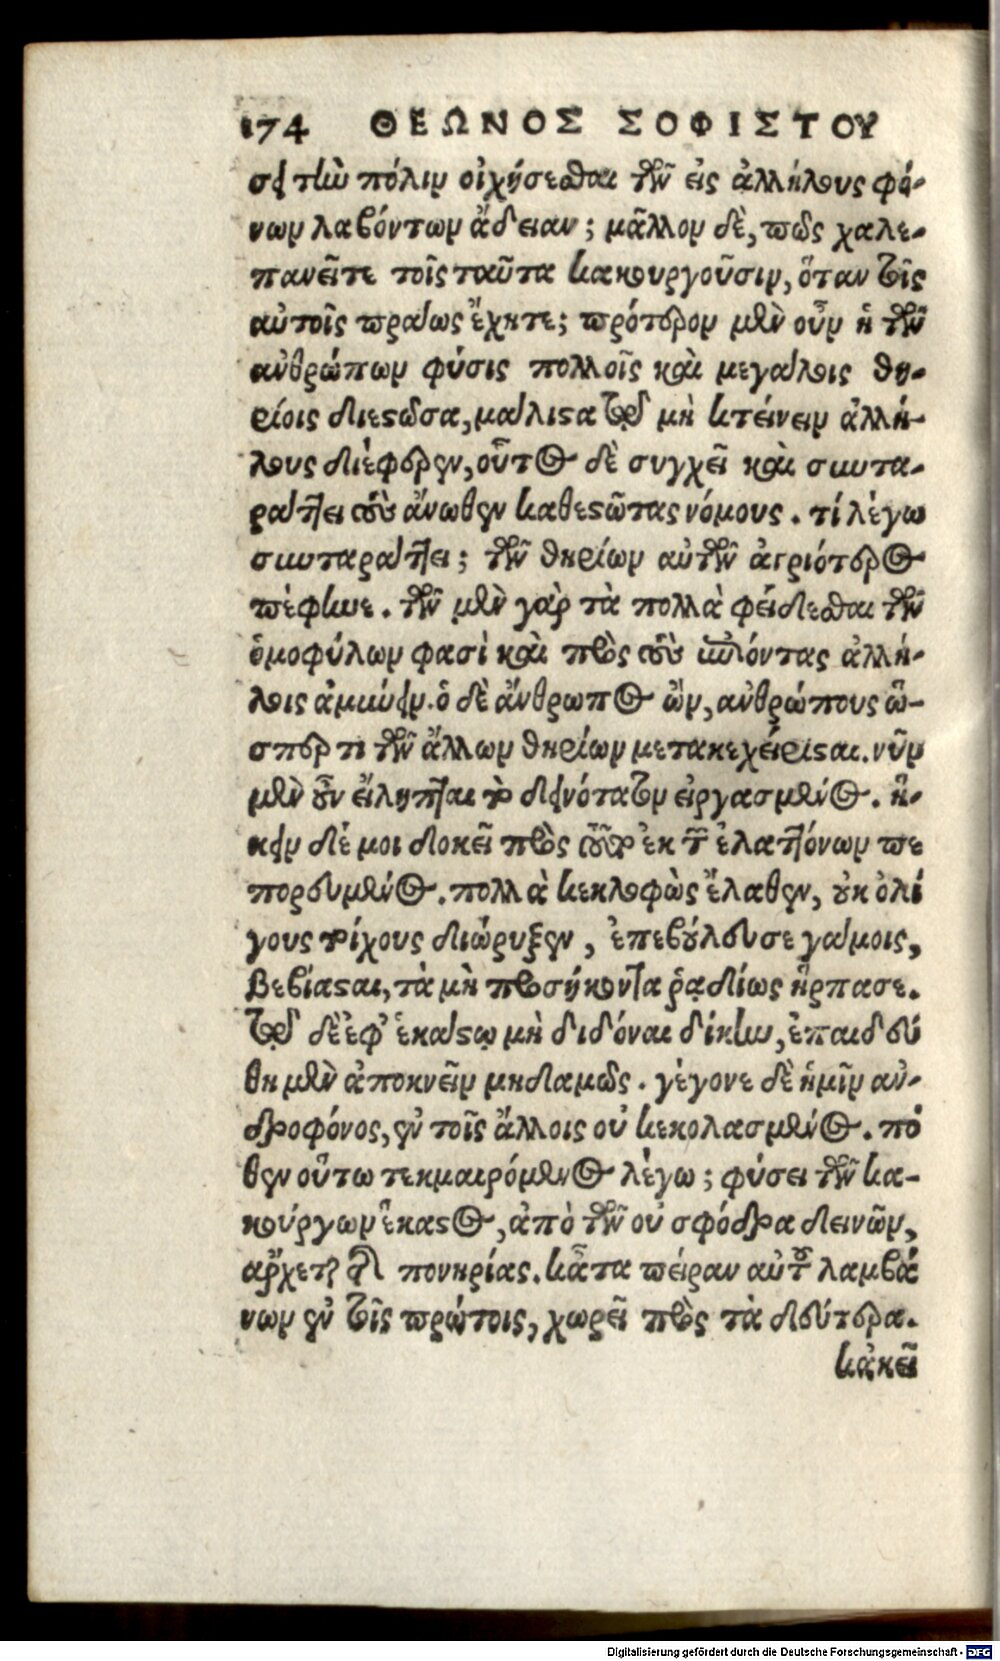 174 ΘΕΩΝΟΣ ΣΟΦΙΣΤΟΥ
σει τὴν πόλιν οἰχήσεσθαι τῶν εἰς ἀλλήλους φό-
νων λαβόντων ἄδειαν; μᾶλλον δὲ, πῶς χαλε-
πανεῖτε τοῖς ταῦτα κακουργοῦσιν, ὅταν τοῖς
αὐτοῖς πράως ἔχητε; πρότερον μὲν οὖν ἡ τῶν
ἀνθρώπων φύσις πολλοῖς καὶ μεγάλοις θη-
ρίοις διεστῶσα, μάλιστα τῷ μὴ κτείνειν ἀλλή-
λους διέφερεν, οὗτος δὲ συγχεῖ καὶ συντα-
ράττει τοὺς ἄνωθεν καθεστῶτας νόμους. τί λέγω
συνταράττει; τῶν θηρίων αὐτῶν ἀγριότερος
πέφηνε. τῶν μὲν γὰρ τὰ πολλὰ φείδεσθαι τῶν
ὁμοφύλων φασὶ καὶ πρὸς τοὺς ἐπιόντας ἀλλή-
λοις ἀμύνειν. ὁ δὲ ἄνθρωπος ὢν, ἀνθρώπους ὥ-
σπερ τι τῶν ἄλλων θηρίων μετακεχείρισαι. νῦν
μὲν οὖν εἴληπται τὸ δεινότατον εἰργασμένος. ἥ-
κειν δέ μοι δοκεῖ πρὸς τοῦτον ἐκ τῶν ἐλαττόνων πε
πορευμένος. πολλὰ κεκλοφὼς ἔλαθεν, οὐκ ὀλί
γους τοίχους διώρυξεν, ἐπεβούλευσε γάμοις,
βεβίασαι, τὰ μὴ προσήκοντα ῥᾳδίως ἥρπασε.
τῷ δὲ ἐφ' ἑκάστῳ μὴ διδόναι δίκην, ἐπαιδεύ
θη μὲν ἀποκνεῖν μηδαμῶς. γέγονε δὲ ἡμῖν ἀν-
δροφόνος, ἐν τοῖς ἄλλοις οὐ κεκολασμένος. πό
θεν οὕτω τεκμαιρόμενος λέγω; φύσει τῶν κα-
κούργων ἕκαστος, ἀπὸ τῶν οὐ σφόδρα δεινῶν,
ἄρχεται τῆς πονηρίας. κᾆτα πεῖραν αὑτοῦ λαμβά
νων ἐν τοῖς πρώτοις, χωρεῖ πρὸς τὰ δεύτερα.
κἀκεῖ
Digitalisierung gefördert durch die Deutsche Forschungsgemeinschaft - DFG